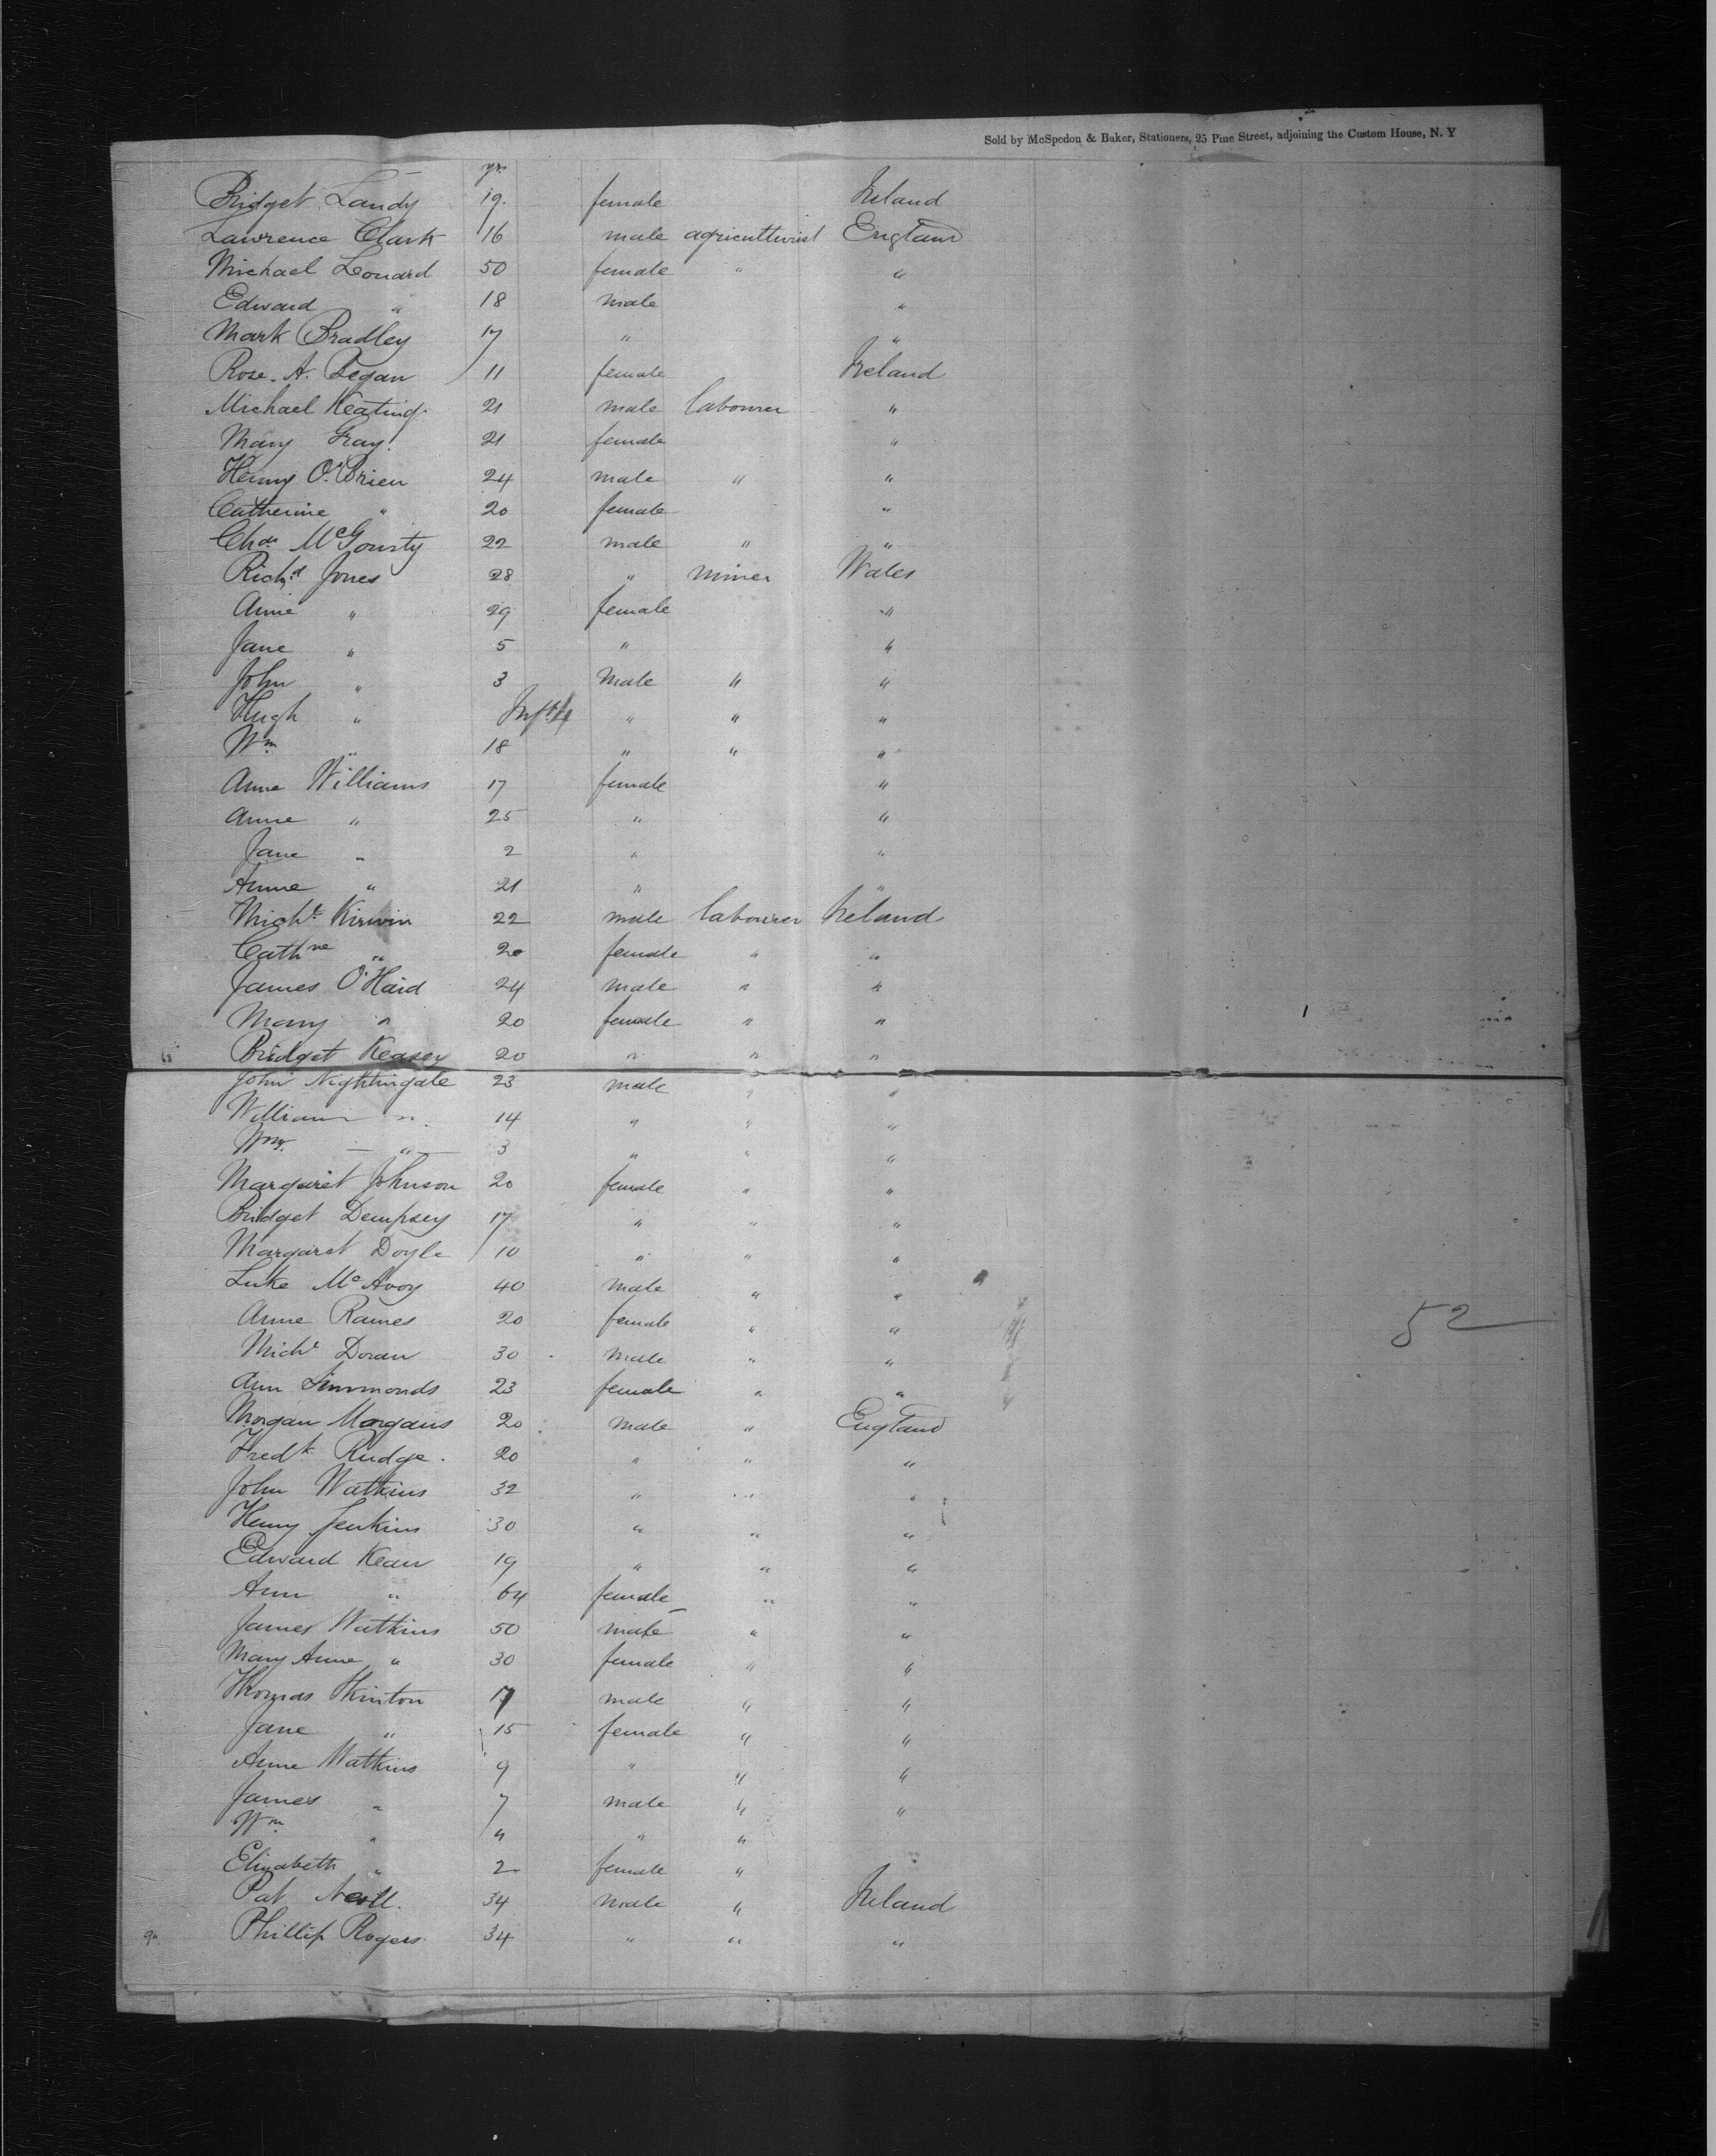 Sold by McSpedon & Baker, Stationers, 25 Pine Street, adjoining the Custom House, N. Y
yrs
Bridget Landy 19 female Ireland
Lawrence Clark 16 male agriculturist England
Michael Leonard 50 female " "
Edward " 18 male "
Mark Bradley 17 " "
Rose. A. Fegan 11 female Ireland
Michael Keating 21 male labourer "
Mary Gray 21 female "
Henry O'Brien 24 male " "
Catherine " 20 female "
Chas McGourty 22 male " "
Richd Jones 28 " miner Wales
Anne " 29 female "
Jane " 5 " "
John " 3 Male " "
Hugh " Inft " " "
Wm " 18 " " "
Anne Williams 17 female "
Anne " 25 " "
Jane " 2 " "
Anne " 21 " "
Michl Kirwin 22 male labourer Ireland
Cathne " 20 female " "
James O'Haid 24 male " "
Mary " 20 female " "
Bridget Keasey 20 " " "
John Nightingale 23 male " "
William " 14 " " "
Wm " 3 " " "
Margaret Johnson 20 female " "
Bridget Dempsey 17 " " "
Margaret Doyle 10 " " "
Luke McAvoy 40 male " "
52
Anne Raines 20 female " "
Michl Doran 30 Male " "
Ann Simmonds 23 female " "
Morgan Morgans 20 male " England
Fredk Rudge 20 " " "
John Watkins 32 " " "
Henry Jenkins 30 " " "
Edward Kean 19 " " "
Ann " 64 female " "
James Watkins 50 male " "
Mary Anne " 30 female " "
Thomas Skinton 17 male " "
Jane " 15 female " "
Anne Watkins 9 " " "
James " 7 male " "
Wm " 4 " "
Elizabeth " 2 female " "
Pat 34 male " Ireland
Phillip Rogers 34 " " "